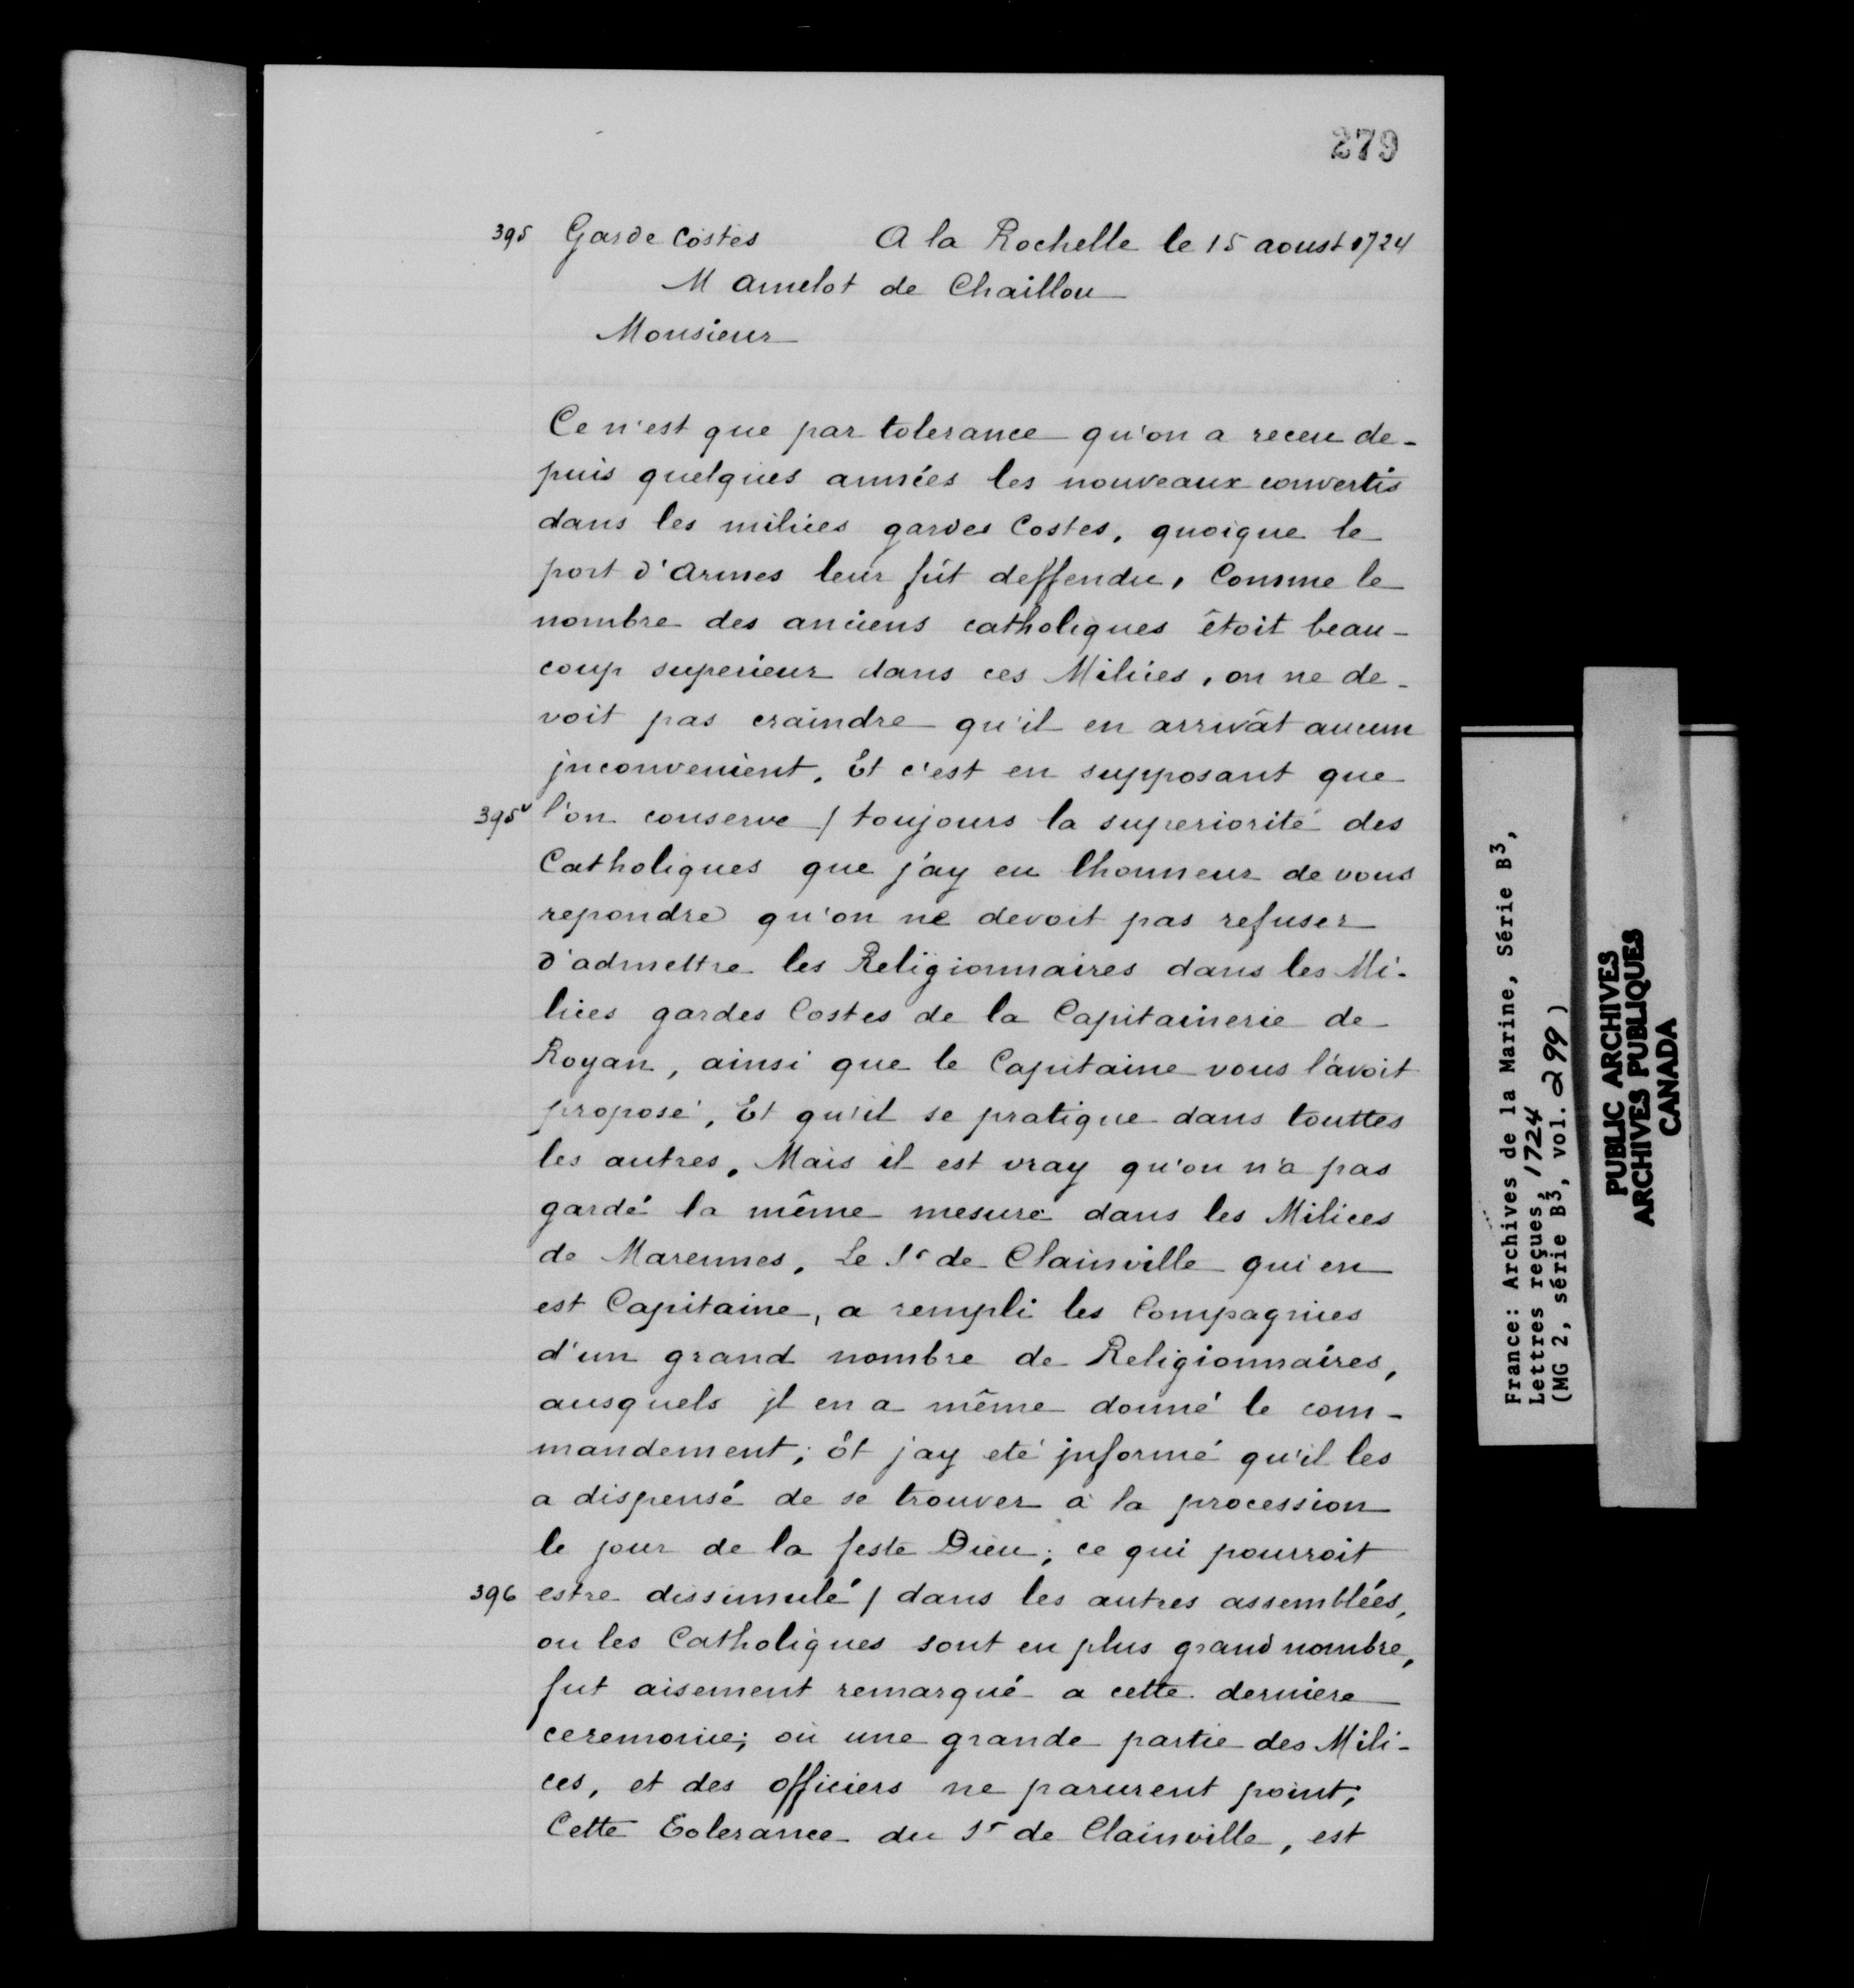 279
395 Garde Costes A la Rochelle le 15 aoust 1724
M amelot de Chaillou
Monsieur
Ce n'est que par tolerance qu'on a receu de-
puis quelques années les nouveaux convertis
dans les milices gardes Costes, quoique le
port d'armes leur fût deffendu, Comme le
nombre des anciens catholiques êtoit beau-
coup superieur dans ces Milices, on ne de-
voit pas craindre qu'il en arrivât aucun
jnconvenient. Et c'est en supposant que
395v l'on conserve / toujours la superiorité des
Catholiques que j'ay eu lhonneur de vous
repondre qu'on ne devoit pas refuser
d'admettre les Religionnaires dans les Mi-
lices gardes Costes de la Capitainerie de
Royan, ainsi que le Capitaine vous l'avoit
proposé, Et qu'il se pratique dans touttes
les autres. Mais il est vray qu'on n'a pas
gardé la même mesure dans les Milices
de Marennes. Le Sr de Clainville qui en
est Capitaine, a rempli les Compagnies
d'un grand nombre de Religionnaires,
ausquels jl en a même donné le com-
mandement; êt jay eté jnformé qu'il les
a dispensé de se trouver à la procession
le jour de la feste Dieu; ce qui pourroit
396 estre dissimulé / dans les autres assemblées,
ou les Catholiques sont en plus grand nombre,
fut aisement remarqué a cette derniere
ceremonie; où une grande partie des Mili-
ces, et des officiers ne parurent point;
Cette Tolerance du Sr de Clainville, est
France: Archives de la Marine, Série B3,
Lettres reçues, 1724
(MG 2, série B3, vol. 299)
PUBLIC ARCHIVES
ARCHIVES PUBLIQUES
CANADA